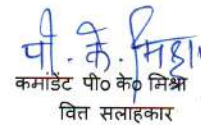 पी. के. मिश्रा
कमांडेंट पी० के० मिश्रा
वित्त सलाहकार